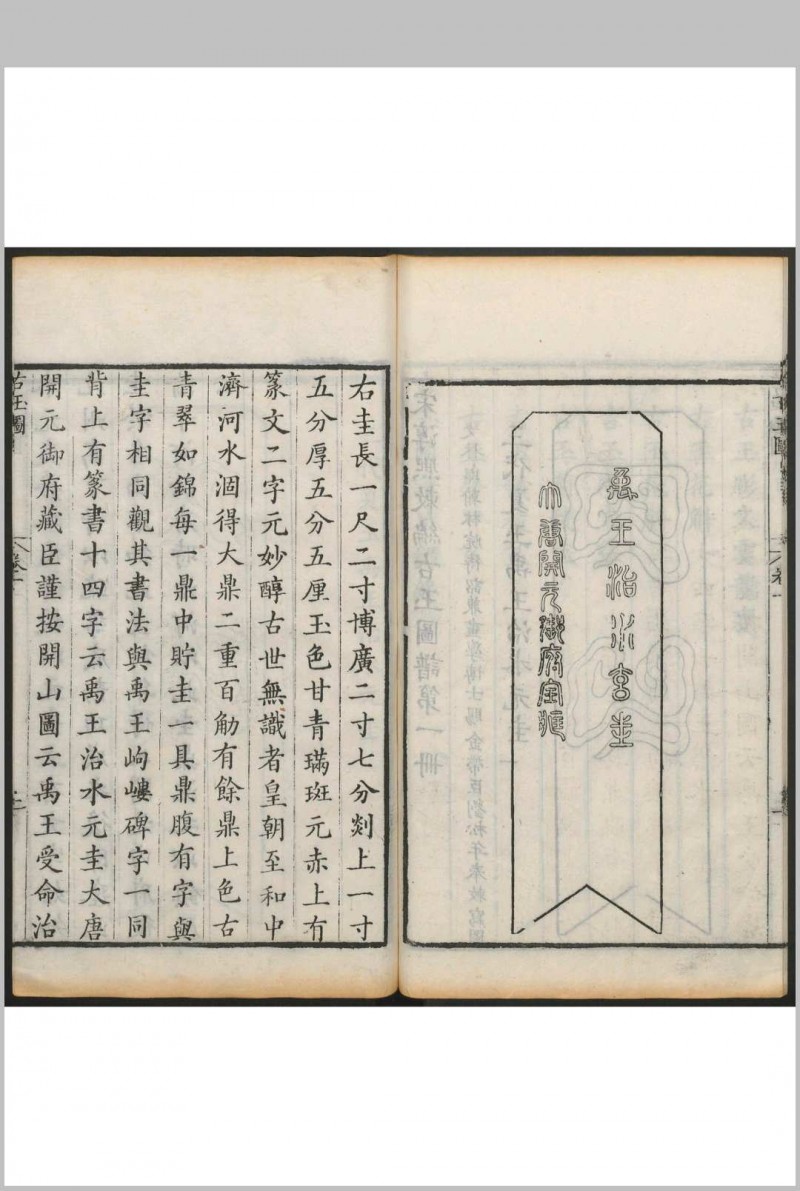 禹王治水玄圭
大唐開元御府寶藏
右圭長一尺二寸博廣二寸七分剡上一寸
五分厚五分五厘玉色甘青璊斑元赤上有
篆文二字元妙醇古世無識者皇朝至和中
濟河水涸得大鼎二重百觔有餘鼎上色古
青翠如錦每一鼎中貯圭一具鼎腹有字與
圭字相同觀其書法與禹王岣嶁碑字一同
背上有篆書十四字云禹王治水元圭大唐
開元御府藏臣謹按開山圖云禹王受命治
古玉圖
卷一